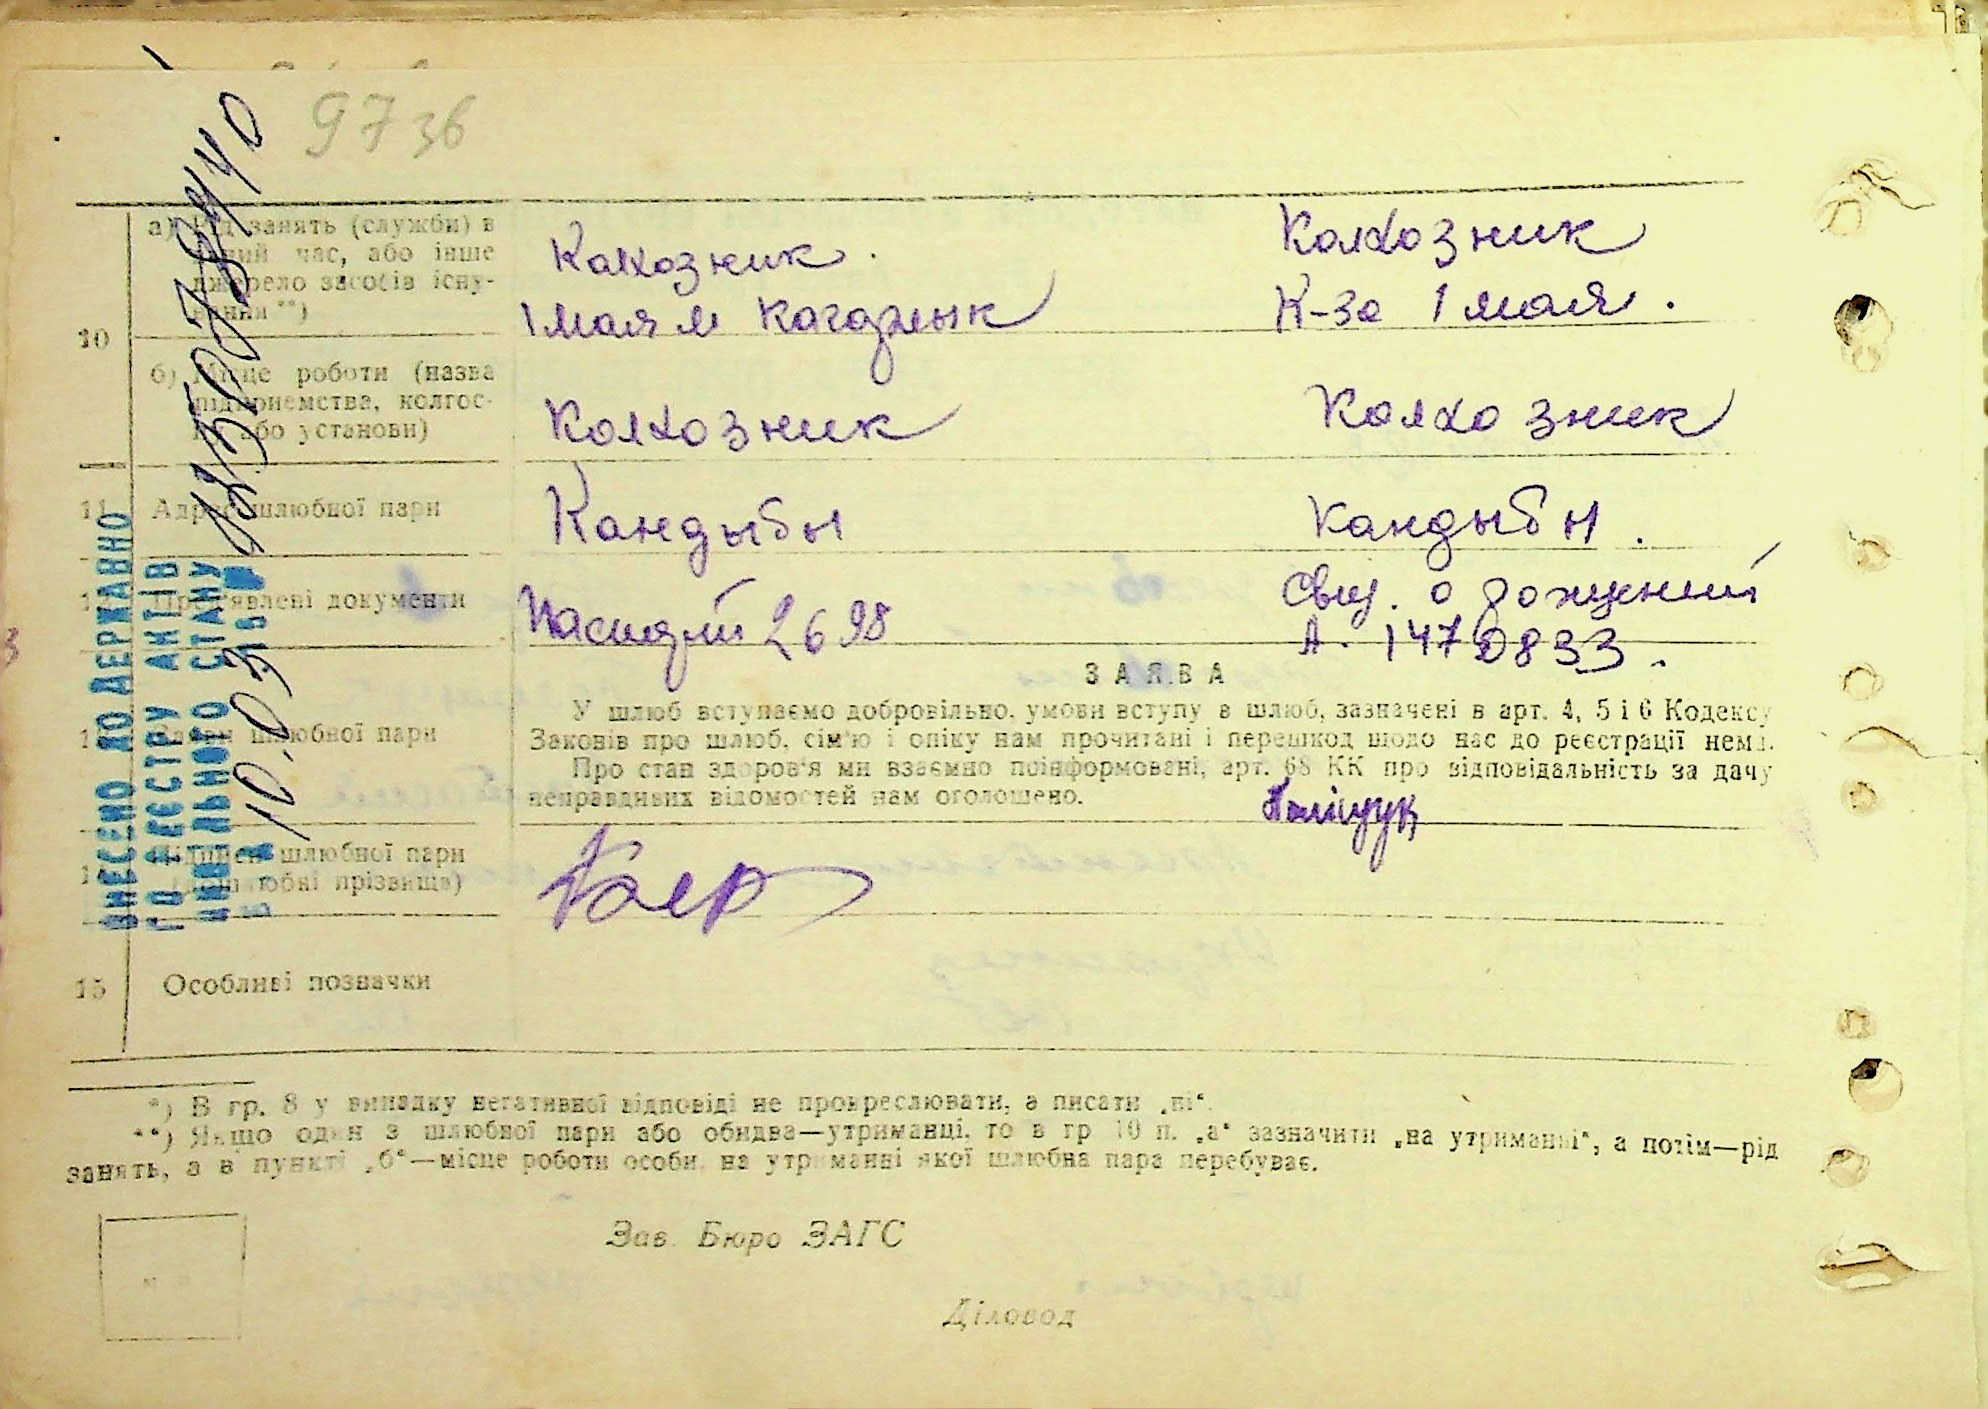 97 зв
а) Рід занять (služби) в
даний час, або інше
джерело засобів існу-
вання **)
Колхозник.
1 мая м
Колхозник
К-за 1 мая.
10
б) Місце роботи (назва
підприємства, колгос-
пу або установи)
Колхозник
Колхозник
11
Адреса шлюбної пари
Кандыбы
Кандыбы.
12
Пред'явлені документи
2698
Свид. о рождении
А. 1470833.
ЗАЯВА
шлюбної пари
У шлюб вступаємо добровільно, умови вступу в шлюб, зазначені в арт. 4, 5 і 6 Кодексу
Законів про шлюб, сім'ю і опіку нам прочитані і перешкод щодо нас до реєстрації нема.
Про стан здоров'я ми взаємно поінформовані, арт. 68 КК про відповідальність за дачу
неправдивих відомостей нам оголошено.
Поліщук
Підписи шлюбної пари
(дошлюбні прізвища)
15
Особливі позначки
ВНЕСЕНО ДО ДЕРЖАВНО
ГО РЕЄСТРУ АКТІВ
ЦИВІЛЬНОГО СТАНУ
10.03
*) В гр. 8 у випадку негативної відповіді не прокреслювати, а писати „ні“.
**) Якщо один з шлюбної пари або обидва—утриманці, то в гр 10 п. „а“ зазначити „на утриманні“, а потім—рід
занять, а в пункті „б“—місце роботи особи, на утриманні якої шлюбна пара перебуває.
Зав. Бюро ЗАГС
Діловод